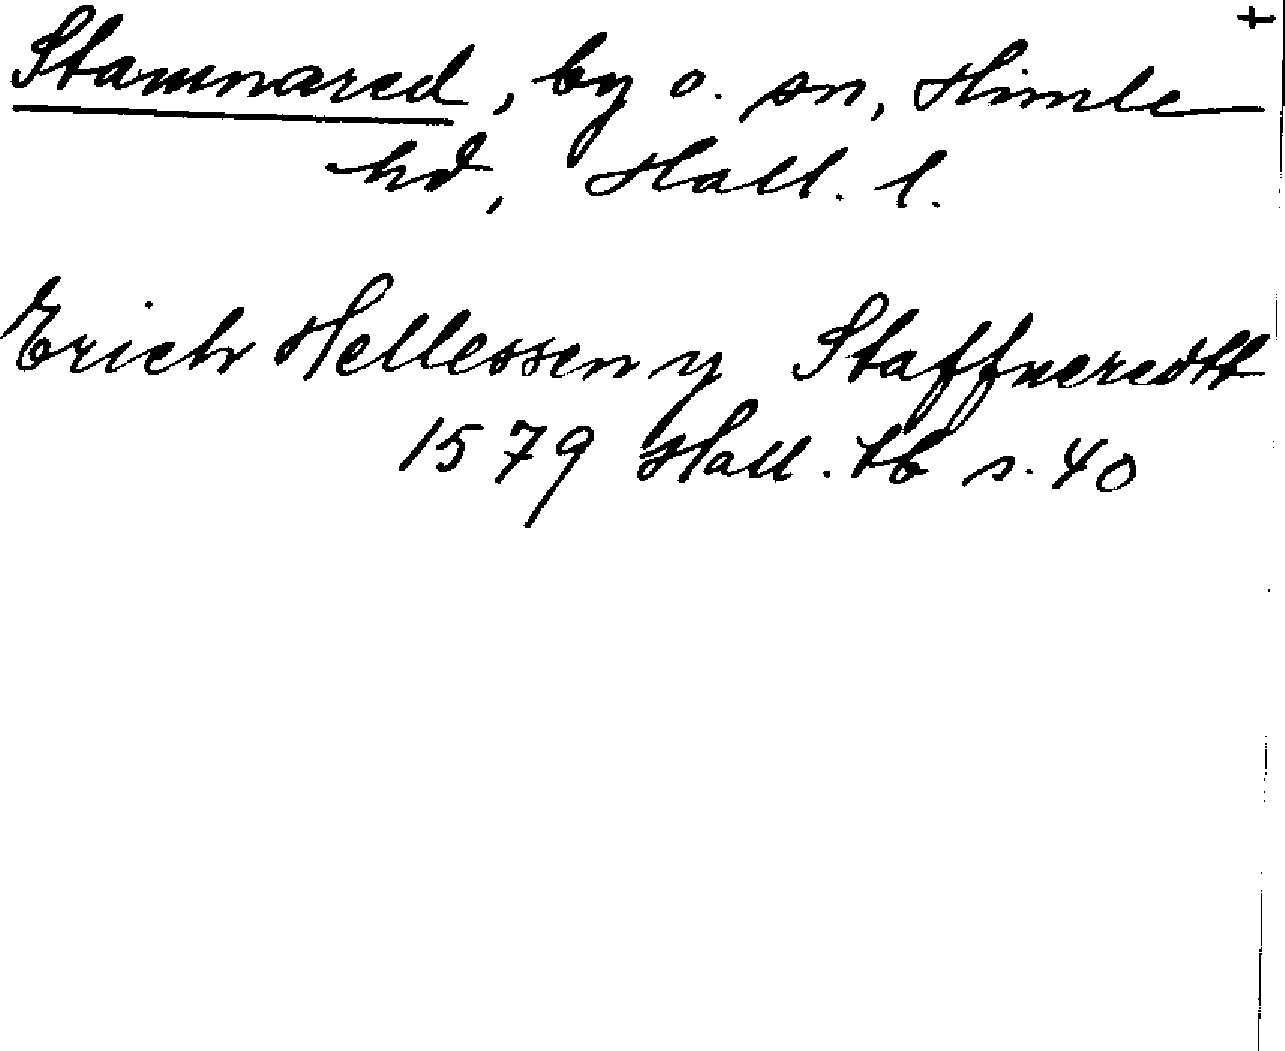 Stamnared, by o. sn, Himle
hd, Hall. l.
Erich Hellessen y Staffneredtt
1579 Hall. tb s. 40